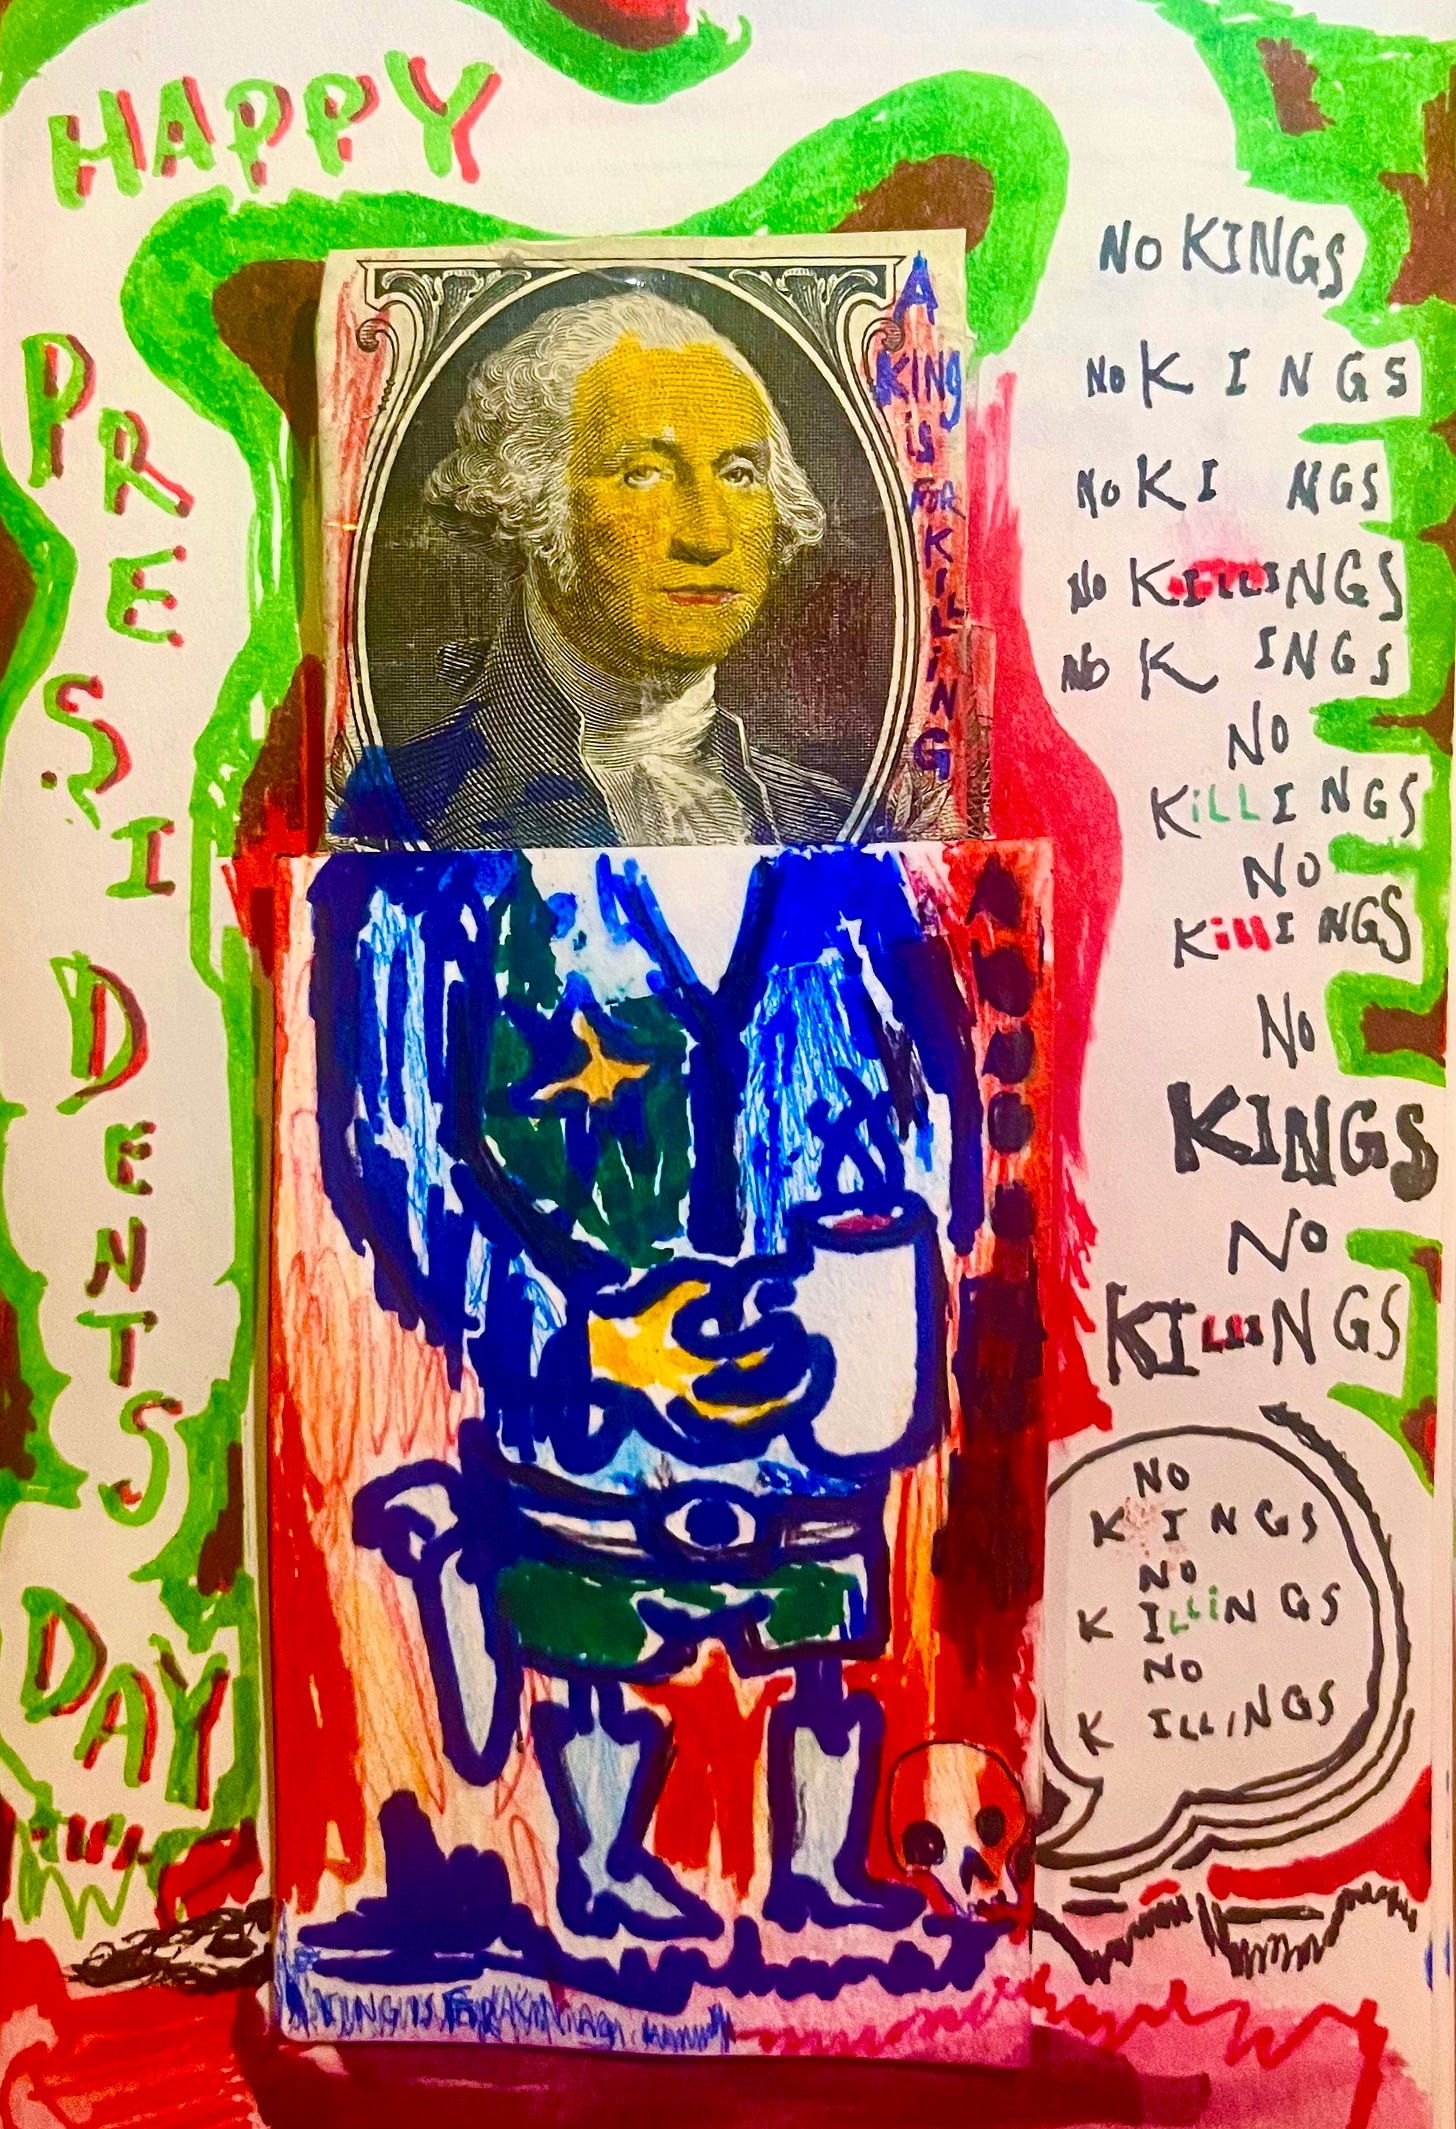 HAPPY
PRESIDENTS
DAY
A
KiNg
iS
FOR
KiLLiNG
NO KINGS
NO K I N G S
NO K I NGS
NO KILLINGS
NO K INGS
NO
KiLLINGS
NO
KillINGS
NO
KINGS
NO
KILLINGS
NO
K INGS
NO
K ILLiNGS
NO
K ILLINGS